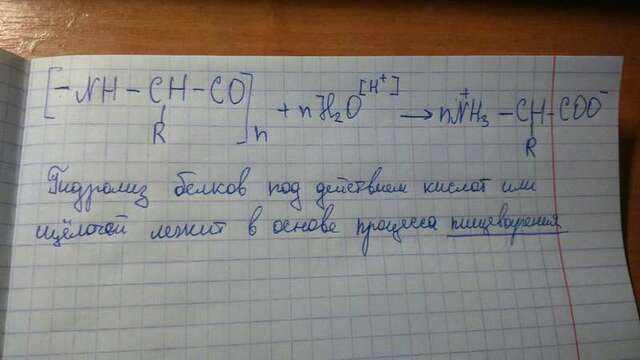 [-NH-CH-CO]n + nH₂O [H⁺] → nN⁺H₃-CH-COO⁻
R R
Гидролиз белков под действием кислот или
щёлочей лежит в основе процесса пищеварения